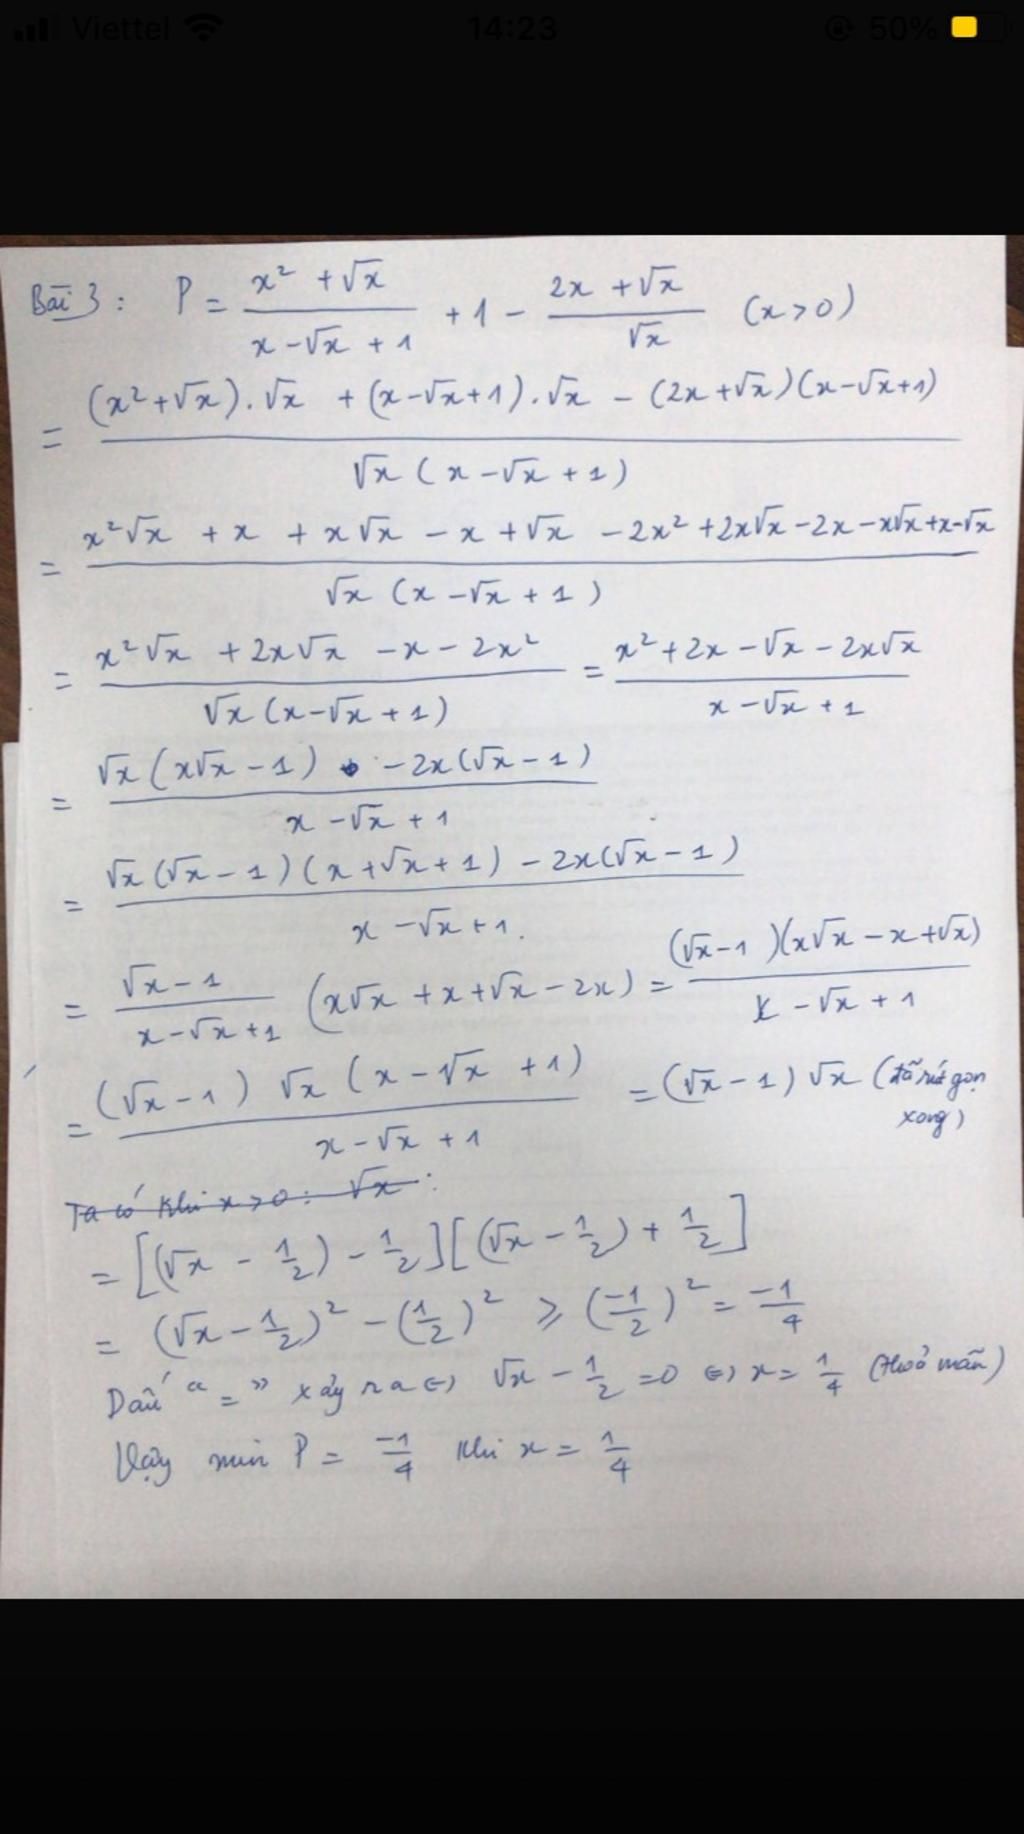 Viettel 14:23 50%
Bài 3: P = \frac{x² + √x}{x - √x + 1} + 1 - \frac{2x + √x}{√x} (x > 0)
= \frac{(x² + √x).√x + (x - √x + 1).√x - (2x + √x)(x - √x + 1)}{√x (x - √x + 1)}
= \frac{x²√x + x + x√x - x + √x - 2x² + 2x√x - 2x - x√x + x - √x}{√x (x - √x + 1)}
= \frac{x²√x + 2x√x - x - 2x²}{√x (x - √x + 1)} = \frac{x² + 2x - √x - 2x√x}{x - √x + 1}
= \frac{√x (x√x - 1) - 2x(√x - 1)}{x - √x + 1}
= \frac{√x (√x - 1)(x + √x + 1) - 2x(√x - 1)}{x - √x + 1.}
= \frac{√x - 1}{x - √x + 1} (x√x + x + √x - 2x) = \frac{(√x - 1)(x√x - x + √x)}{x - √x + 1}
= \frac{(√x - 1) √x (x - √x + 1)}{x - √x + 1} = (√x - 1) √x (đã rút gọn
xong)
Ta có khi x > 0: √x :
= [(√x - \frac{1}{2}) - \frac{1}{2}][(√x - \frac{1}{2}) + \frac{1}{2}]
= (√x - \frac{1}{2})² - (\frac{1}{2})² ⩾ (\frac{-1}{2})² = \frac{-1}{4}
Dấu "=" xảy ra ⇔ √x - \frac{1}{2} = 0 ⇔ x = \frac{1}{4} (thoả mãn)
Vậy min P = \frac{-1}{4} khi x = \frac{1}{4}